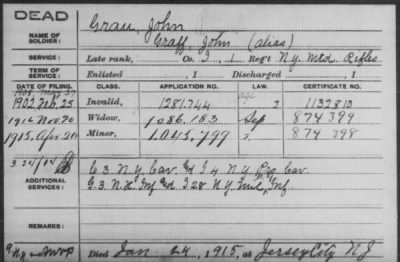 DEAD
NAME OF SOLDIER: Grau, John
Graff, John (alias)
SERVICE: Late rank, Co. I, 1 Reg't N.Y. Mtd. Rifles
TERM OF SERVICE: Enlisted , 1 Discharged , 1
DATE OF FILING. CLASS. APPLICATION NO. LAW. CERTIFICATE NO.
1902 Feb. 25 Invalid, 1281.744 1132810
1914 Nov 20 Widow, 1.036.183 874399
1915, Apr. 20 Minor, 1.045.799 874398
ADDITIONAL SERVICES:
C 3. N.Y. Cav. I 4 N.Y. Cav.
G. 3. N.Y. Inf I 28 N.Y. Mil. Inf.
REMARKS:
Died Jan 24, 1915, at Jersey City N.J